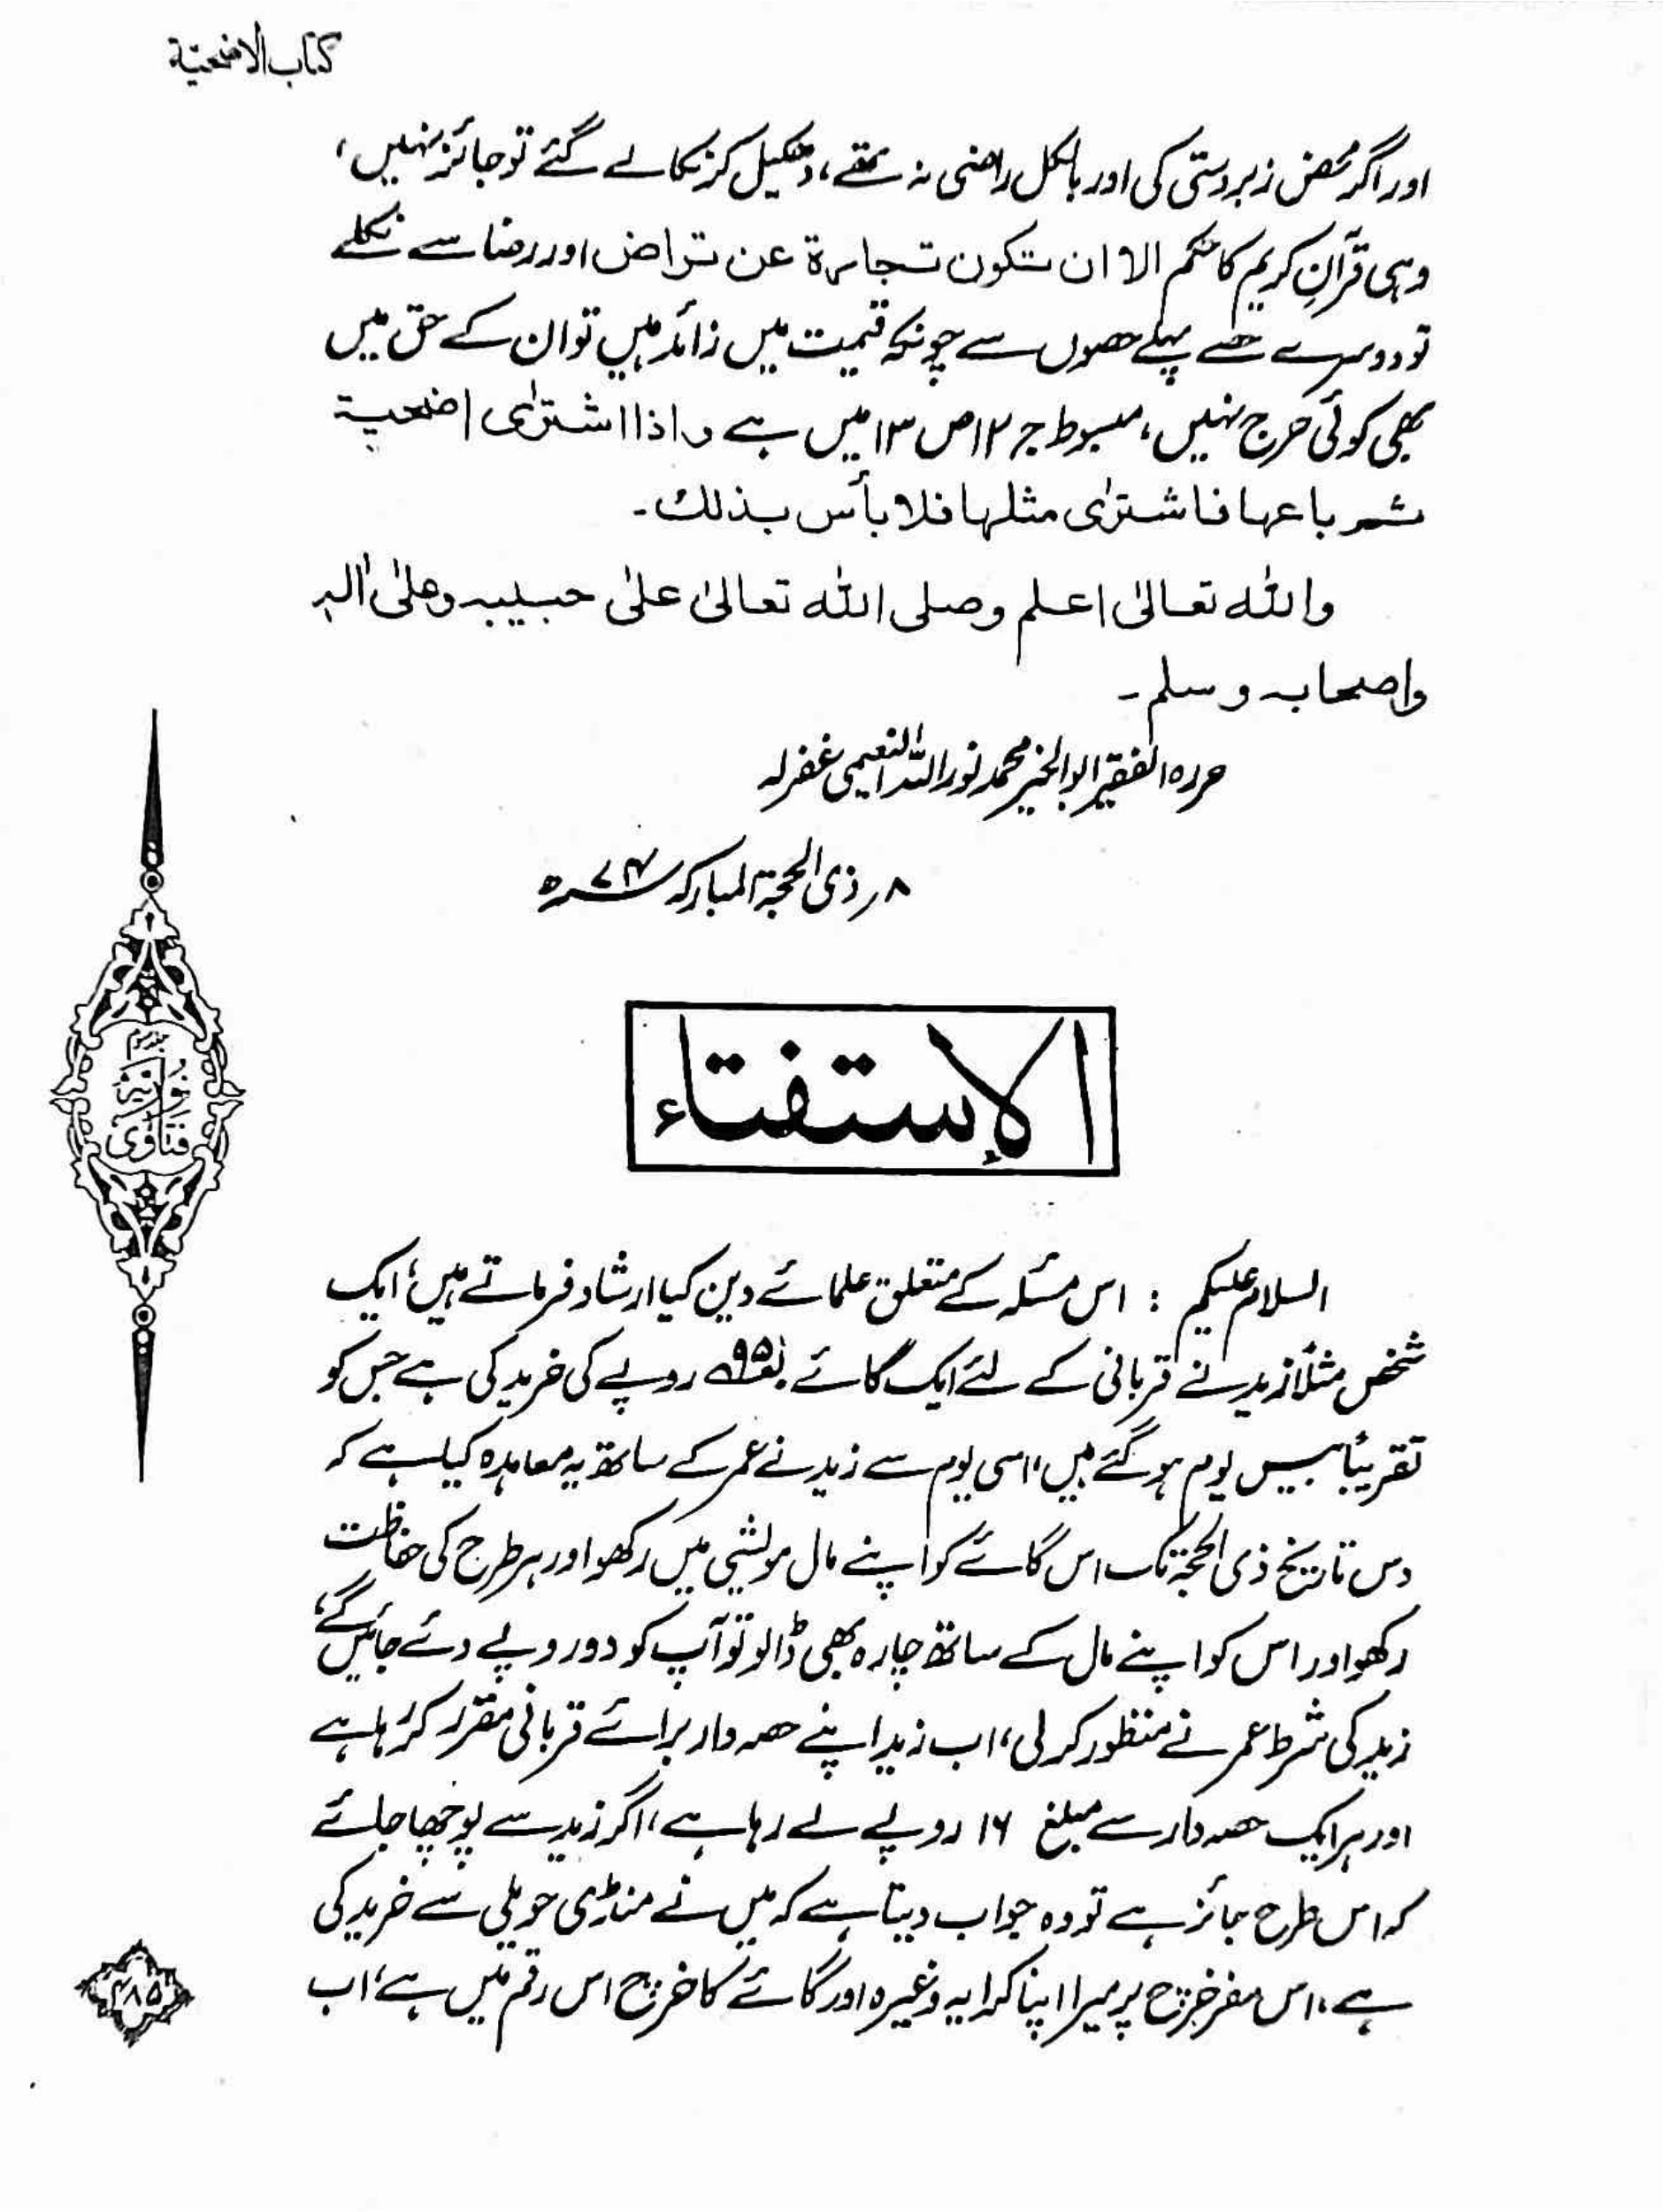 کتاب الاضحیّة
اور اگر محض زبردستی کی اور بالکل راضی نہ تھے، دھکیل کر نکالے گئے تو جائز نہیں،
وہی قرآنِ کریم کا حکم الا ان تکون تجارة عن تراض اور رضا سے نکلے
تو دوسرے حصے پہلے حصوں سے چونکہ قیمت میں زائد ہیں تو ان کے حق میں
بھی کوئی حرج نہیں، مبسوط ج ۱۲ ص ۱۳ میں ہے واذا اشترٰی اضحیة
ثم باعها فاشترٰی مثلها فلا بأس بذلك۔
واللہ تعالیٰ اعلم وصلی اللہ تعالیٰ علیٰ حبیبہ وعلیٰ اٰلہ
واصحابہ وسلم۔
حررہ الفقیر ابوالخیر محمد نور اللہ النعیمی غفرلہ
۸؍ ذی الحجۃ المبارکہ ۷۴ھ
الإستفتاء
السلام علیکم : اس مسئلہ کے متعلق علمائے دین کیا ارشاد فرماتے ہیں؛ ایک
شخص مثلاً زید نے قربانی کے لئے ایک گائے ۹۵ روپے کی خرید کی ہے جس کو
تقریباً بیس یوم ہو گئے ہیں، اسی یوم سے زید نے عمر کے ساتھ یہ معاہدہ کیا ہے کہ
دس تاریخ ذی الحجۃ تک اس گائے کو اپنے مال مویشی میں رکھو اور ہر طرح کی حفاظت
رکھو اور اس کو اپنے مال کے ساتھ چارہ بھی ڈالو تو آپ کو دو روپے دئے جائیں گے،
زید کی شرط عمر نے منظور کر لی، اب زید اپنے حصہ دار برائے قربانی مقرر کر رہا ہے
اور ہر ایک حصہ دار سے مبلغ ۱۶ روپے لے رہا ہے، اگر زید سے پوچھا جائے
کہ اس طرح جائز ہے تو وہ جواب دیتا ہے کہ میں نے منڈی حویلی سے خرید کی
ہے، اس سفر خرچ پر میرا اپنا کرایہ وغیرہ اور گائے کا خرچ اس رقم میں ہے، اب
فتاوٰی نوریہ
۴۸۵